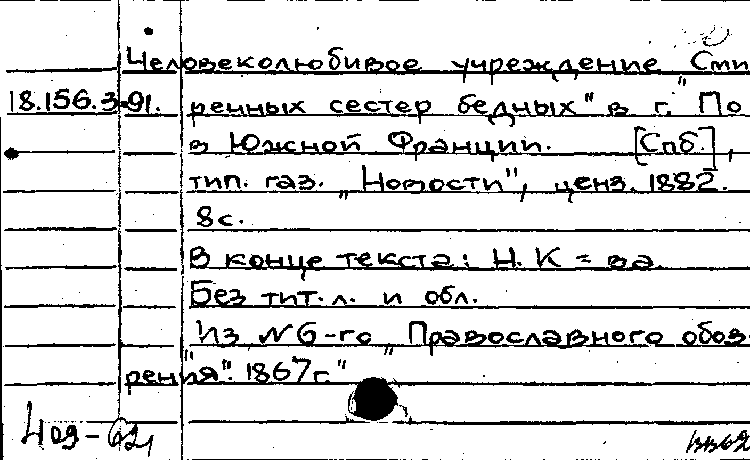 Человеколюбивое учреждение „Сми
18.156.3.91. ренных сестер бедных" в г. По
в Южной Франции. [Спб.],
тип. газ. „Новости", ценз. 1882.
8 с.
В конце текста: Н. К = ва
Без тит. л. и обл.
Из № 6-го „Православного обоз-
рения". 1867 г."
409-621